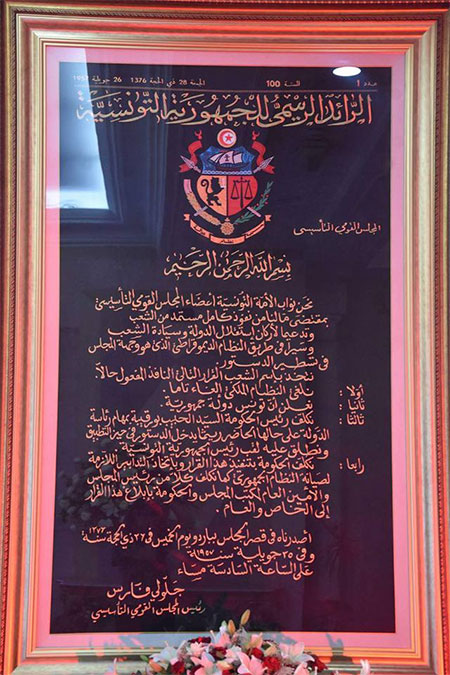 عدد 1 السنة 100 الجمعة 28 ذي الحجة 1376 26 جويلية 1957
الرائد الرسمي للجمهورية التونسية
المجلس القومي التأسيسي
بسم الله الرحمن الرحيم
نحن نواب الأمة التونسية أعضاء المجلس القومي التأسيسي
بمقتضى مالنا من نفوذ كامل مستمد من الشعب
وتدعيما لأركان استقلال الدولة وسيادة الشعب
وسيرا في طريق النظام الديموقراطي الذي هو وجهة المجلس
في تسطير الدستور
نتخذ باسم الشعب القرار التالي النافذ المفعول حالا.
أولا : نلغي النظام الملكي إلغاء تاما
ثانيا : نعلن أن تونس دولة جمهورية
ثالثا : نكلف رئيس الحكومة السيد الحبيب بورقيبة بمهام رئاسة
الدولة على حالها الحاضر ريثما يدخل الدستور في حيز التطبيق
ونطلق عليه لقب رئيس الجمهورية التونسية
رابعا : نكلف الحكومة بتنفيذ هذا القرار وباتخاذ التدابير اللازمة
لصيانة النظام الجمهوري كما نكلف كلا من رئيس المجلس
والأمين العام لمكتب المجلس والحكومة بإبلاغ هذا القرار
إلى الخاص والعام .
أصدرناه في قصر المجلس بباردو يوم الخميس في ٢٧ ذي الحجة سنة
وفي ٢٥ جويلية سنة ١٩٥٧
على الساعة السادسة مساء
جلولي فارس
رئيس المجلس القومي التأسيسي